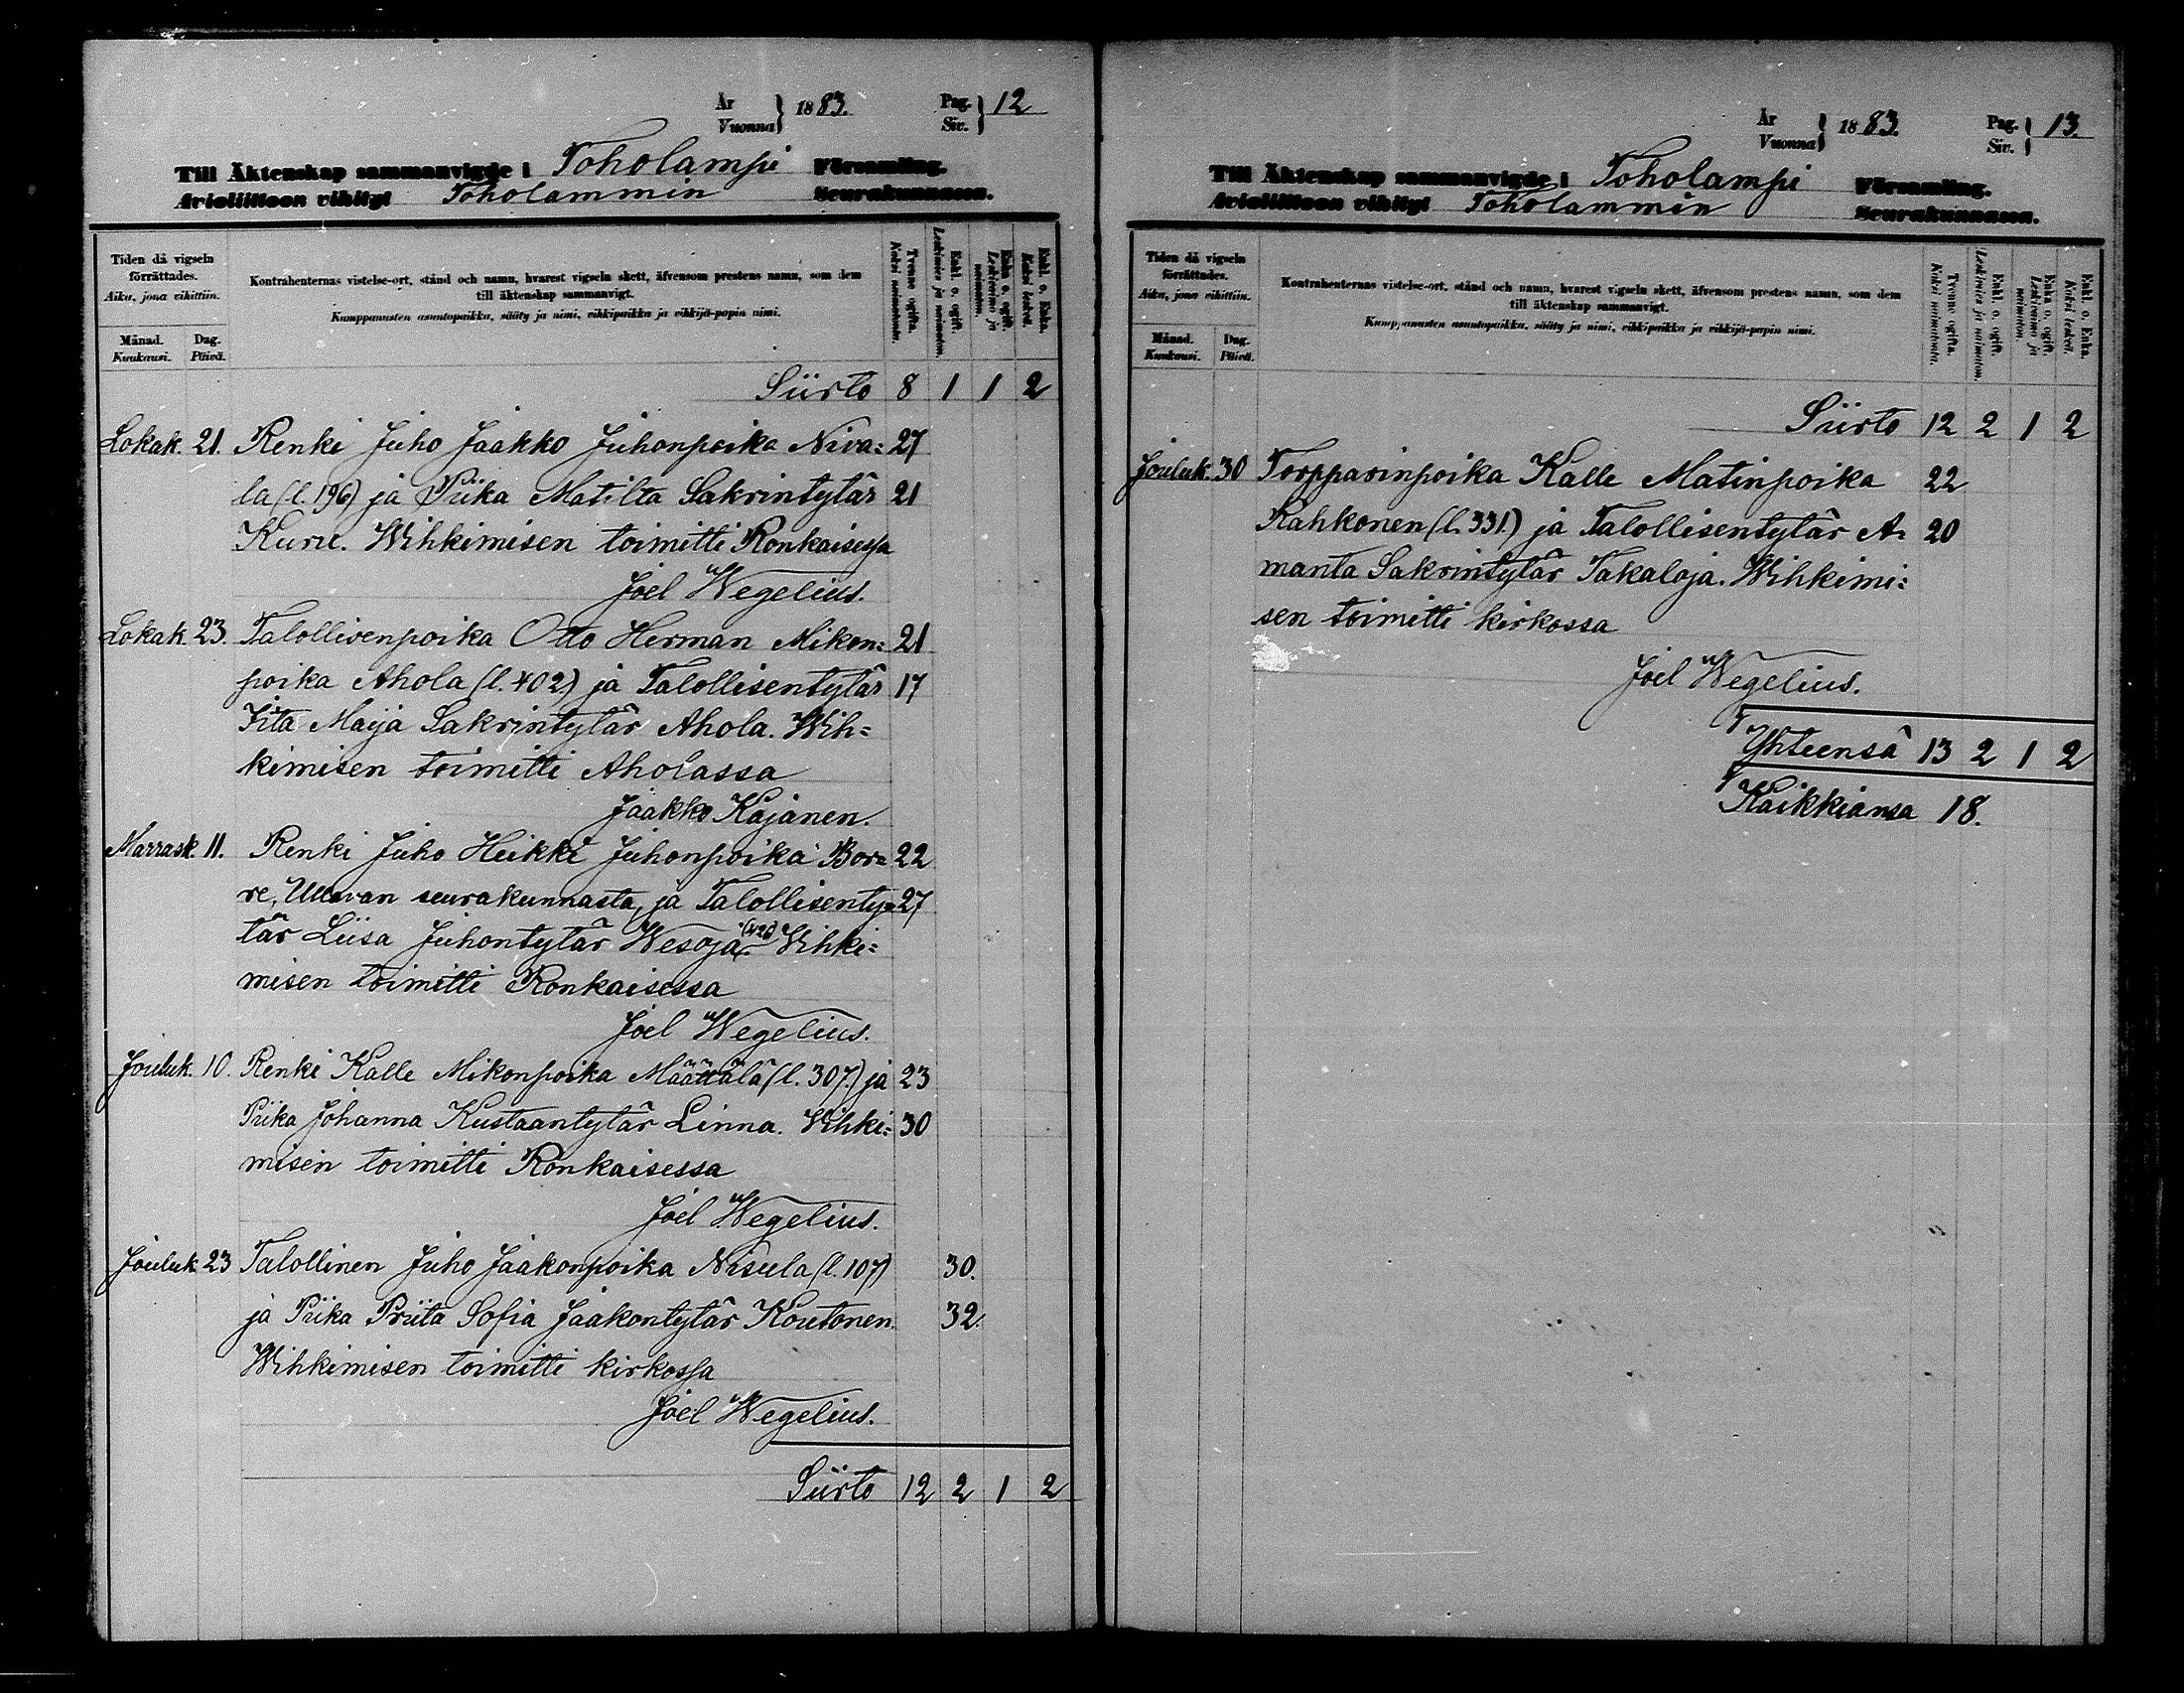 År
Vuonna } 1883.
Pag.
Siv. } 12
Till Äktenskap sammanvigde i Toholampi Församling.
Avioliittoon vihityt Toholammin Seurakunnassa.
Tiden då vigseln
förrättades.
Aika, jona vihittiin.
Månad.
Kuukausi.
Dag.
Päivä.
Kontrahenternas vistelse-ort, stånd och namn, hvarest vigseln skett, äfvensom prestens namn, som dem
till äktenskap sammanvigt.
Kumppanusten asuntopaikka, sääty ja nimi, vihkipaikka ja vihkijä-papin nimi.
Tvenne ogifta.
Kaksi naimatonta.
Enkl. o. ogift.
Leskimies ja naimaton.
Enka o. ogift.
Leskivaimo ja
naimaton.
Enkl. o. Enka.
Kaksi leskeä.
Siirto 8 1 1 2
Lokak. 21. Renki Juho Jaakko Juhonpoika Niva= 27
la (l. 196) ja Piika Matilta Sakrintytär 21
Kuru. Wihkimisen toimitti Ronkaisessa
Joel Wegelius.
Lokak. 23. Talollisenpoika Otto Herman Mikon= 21
poika Ahola (l. 402) ja Talollisentytär 17
Iita Maija Sakrintytär Ahola. Wih=
kimisen toimitti Aholassa
Jaakko Kajanen.
Marrask. 11. Renki Juho Heikki Juhonpoika Bor= 22
re, Ullavan seurakunnasta, ja Talollisenty= 27
tär Liisa Juhontytär Wesoja. Wihki=
misen toimitti Ronkaisessa
Joel Wegelius.
Jouluk. 10. Renki Kalle Mikonpoika Määttälä (l. 307.) ja 23
Piika Johanna Kustaantytär Linna. Wihki= 30
misen toimitti Ronkaisessa
Joel Wegelius.
Jouluk 23 Talollinen Juho Jaakonpoika Nisula (l. 107) 30.
ja Piika Priita Sofia Jaakontytär Koutonen. 32.
Wihkimisen toimitti kirkossa
Joel Wegelius.
Siirto 12 2 1 2
År
Vuonna } 1883.
Pag.
Siv. } 13.
Till Äktenskap sammanvigde i Toholampi Församling.
Avioliittoon vihityt Toholammin Seurakunnassa.
Tiden då vigseln
förrättades.
Aika, jona vihittiin.
Månad.
Kuukausi.
Dag.
Päivä.
Kontrahenternas vistelse-ort, stånd och namn, hvarest vigseln skett, äfvensom prestens namn, som dem
till äktenskap sammanvigt.
Kumppanusten asuntopaikka, sääty ja nimi, vihkipaikka ja vihkijä-papin nimi.
Tvenne ogifta.
Kaksi naimatonta.
Enkl. o. ogift.
Leskimies ja naimaton.
Enka o. ogift.
Leskivaimo ja
naimaton.
Enkl. o. Enka.
Kaksi leskeä.
Siirto 12 2 1 2
Jouluk. 30 Torpparinpoika Kalle Matinpoika 22
Kahkonen (l. 331.) ja Talollisentytär A= 20
manta Sakrintytär Takaloja. Wihkimi=
sen toimitti kirkossa
Joel Wegelius.
Yhteensä 13 2 1 2
Kaikkiansa 18.